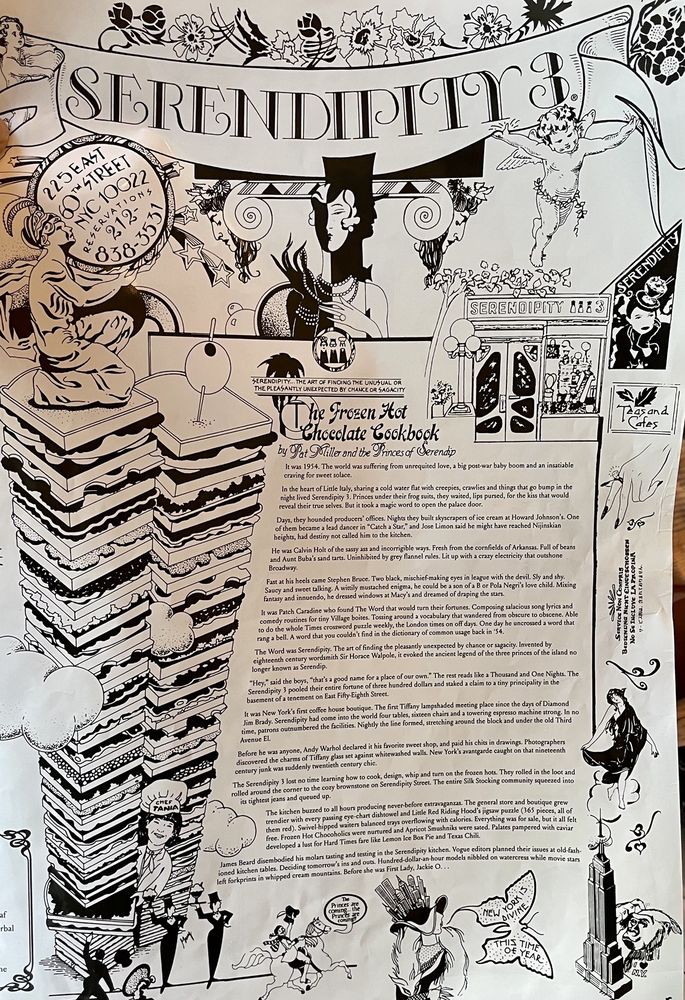 SERENDIPITY 3®
225 EAST
60TH STREET
NYC 10022
RESERVATIONS
212-
838-3531
SERENDIPITY 3
SERENDIPITY
SERENDIPITY... THE ART OF FINDING THE UNUSUAL OR
THE PLEASANTLY UNEXPECTED BY CHANCE OR SAGACITY
The Frozen Hot
Chocolate Cookbook
by Pat Miller and the Princes of Serendip
It was 1954. The world was suffering from unrequited love, a big post-war baby boom and an insatiable
craving for sweet solace.
In the heart of Little Italy, sharing a cold water flat with creepies, crawlies and things that go bump in the
night lived Serendipity 3. Princes under their frog suits, they waited, lips pursed, for the kiss that would
reveal their true selves. But it took a magic word to open the palace door.
Days, they hounded producers' offices. Nights they built skyscrapers of ice cream at Howard Johnson's. One
of them became a lead dancer in "Catch a Star," and Jose Limon said he might have reached Nijinskian
heights, had destiny not called him to the kitchen.
He was Calvin Holt of the sassy ass and incorrigible ways. Fresh from the cornfields of Arkansas. Full of beans
and Aunt Buba's sand tarts. Uninhibited by grey flannel rules. Lit up with a crazy electricity that outshone
Broadway.
Fast at his heels came Stephen Bruce. Two black, mischief-making eyes in league with the devil. Sly and shy.
Saucy and sweet talking. A wittily mustached enigma, he could be a son of a B or Pola Negri's love child. Mixing
fantasy and innuendo, he dressed windows at Macy's and dreamed of draping the stars.
It was Patch Caradine who found The Word that would turn their fortunes. Composing salacious song lyrics and
comedy routines for tiny Village boites. Tossing around a vocabulary that wandered from obscure to obscene. Able
to do the whole Times crossword puzzle weekly, the London times on off days. One day he uncrossed a word that
rang a bell. A word that you couldn't find in the dictionary of common usage back in '54.
The Word was Serendipity. The art of finding the pleasantly unexpected by chance or sagacity. Invented by
eighteenth century wordsmith Sir Horace Walpole, it evoked the ancient legend of the three princes of the island no
longer known as Serendip.
"Hey," said the boys, "that's a good name for a place of our own." The rest reads like a Thousand and One Nights. The
Serendipity 3 pooled their entire fortune of three hundred dollars and staked a claim to a tiny principality in the
basement of a tenement on East Fifty-Eighth Street.
It was New York's first coffee house boutique. The first Tiffany lampshaded meeting place since the days of Diamond
Jim Brady. Serendipity had come into the world four tables, sixteen chairs and a towering espresso machine strong. In no
time, patrons outnumbered the facilities. Nightly the line formed, stretching around the block and under the old Third
Avenue El.
Before he was anyone, Andy Warhol declared it his favorite sweet shop, and paid his chits in drawings. Photographers
discovered the charms of Tiffany glass set against whitewashed walls. New York's avantgarde caught on that nineteenth
century junk was suddenly twentieth century chic.
The Serendipity 3 lost no time learning how to cook, design, whip and turn on the frozen hots. They rolled in the loot and
rolled around the corner to the cozy brownstone on Serendipity Street. The entire Silk Stocking community squeezed into
its tightest jeans and queued up.
The kitchen buzzed to all hours producing never-before extravaganzas. The general store and boutique grew
trendier with every passing eye-chart dishtowel and Little Red Riding Hood's jigsaw puzzle (365 pieces, all of
them red). Swivel-hipped waiters balanced trays overflowing with calories. Everything was for sale, but it all felt
free. Frozen Hot Chocoholics were nurtured and Apricot Smushniks were sated. Palates pampered with caviar
developed a lust for Hard Times fare like Lemon Ice Box Pie and Texas Chili.
James Beard disembodied his molars tasting and testing in the Serendipity kitchen. Vogue editors planned their issues at old-fash-
ioned kitchen tables. Deciding tomorrow's ins and outs. Hundred-dollar-an-hour models nibbled on watercress while movie stars
left forkprints in whipped cream mountains. Before she was First Lady, Jackie O. . .
Teas and
Cakes
SERVICE NON COMPRIS
BEDIENUNG NICHT EINGESCHLOSSEN
NO SE INCLUYE LA PROPINA
CHEF
TANIA
The
Princes are
coming, the
Princes are
coming!
NEW YORK IS
DIVINE
THIS TIME
OF YEAR
N.Y.